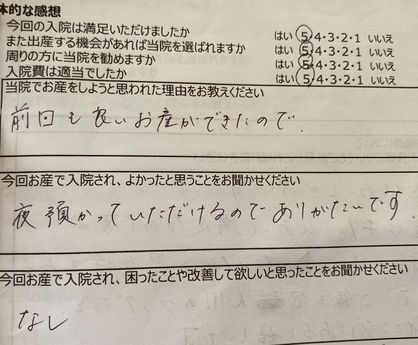 体的な感想
今回の入院は満足いただけましたか はい 5・4・3・2・1 いいえ
また出産する機会があれば当院を選ばれますか はい 5・4・3・2・1 いいえ
周りの方に当院を勧めますか はい 5・4・3・2・1 いいえ
入院費は適当でしたか はい 5・4・3・2・1 いいえ
当院でお産をしようと思われた理由をお教えください
前回も良いお産ができたので.
今回お産で入院され、よかったと思うことをお聞かせください
夜預かっていただけるのでありがたいです.
今回お産で入院され、困ったことや改善して欲しいと思ったことをお聞かせください
なし